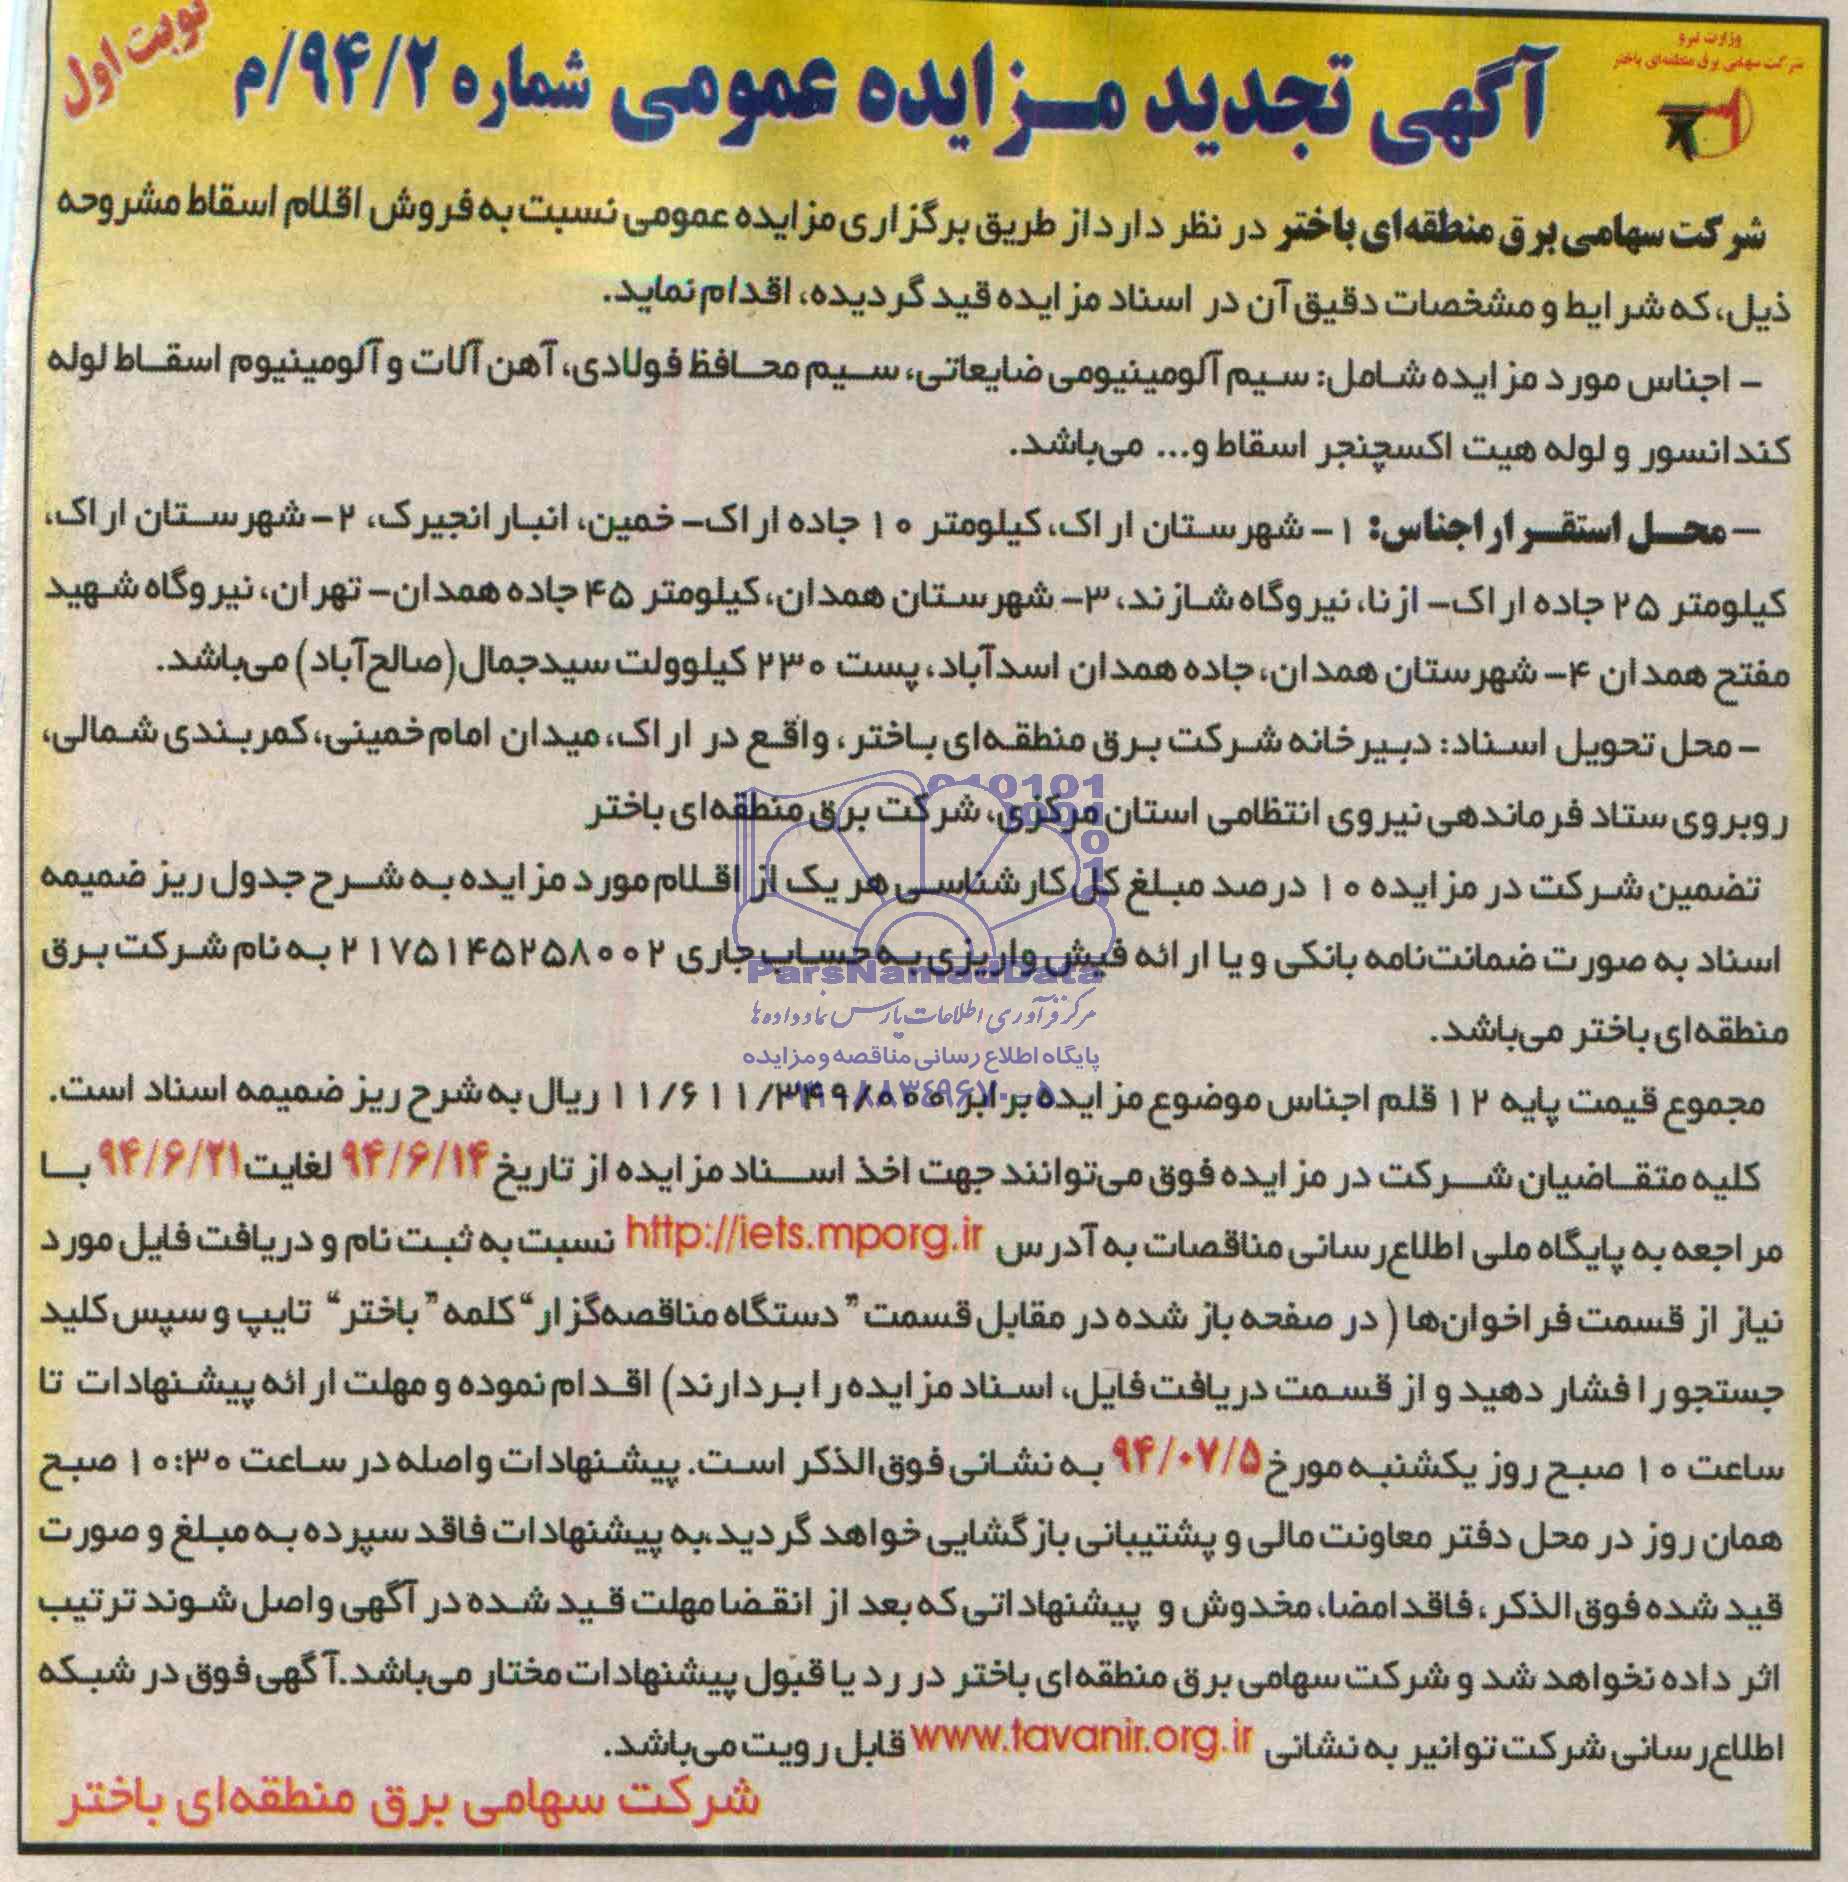 وزارت نیرو
شرکت سهامی برق منطقه‌ای باختر
نوبت اول
آگهی تجدید مزایده عمومی شماره ۹۴/۲/م
شرکت سهامی برق منطقه‌ای باختر در نظر دارد از طریق برگزاری مزایده عمومی نسبت به فروش اقلام اسقاط مشروحه
ذیل، که شرایط و مشخصات دقیق آن در اسناد مزایده قید گردیده، اقدام نماید.
- اجناس مورد مزایده شامل: سیم آلومینیومی ضایعاتی، سیم محافظ فولادی، آهن آلات و آلومینیوم اسقاط لوله
کندانسور و لوله هیت اکسچنجر اسقاط و... می‌باشد.
- محل استقرار اجناس: ۱- شهرستان اراک، کیلومتر ۱۰ جاده اراک- خمین، انبار انجیرک، ۲- شهرستان اراک،
کیلومتر ۲۵ جاده اراک- ازنا، نیروگاه شازند، ۳- شهرستان همدان، کیلومتر ۴۵ جاده همدان- تهران، نیروگاه شهید
مفتح همدان ۴- شهرستان همدان، جاده همدان اسدآباد، پست ۲۳۰ کیلوولت سیدجمال (صالح‌آباد) می‌باشد.
- محل تحویل اسناد: دبیرخانه شرکت برق منطقه‌ای باختر، واقع در اراک، میدان امام خمینی، کمربندی شمالی،
روبروی ستاد فرماندهی نیروی انتظامی استان مرکزی، شرکت برق منطقه‌ای باختر
تضمین شرکت در مزایده ۱۰ درصد مبلغ کل کارشناسی هر یک از اقلام مورد مزایده به شرح جدول ریز ضمیمه
اسناد به صورت ضمانت‌نامه بانکی و یا ارائه فیش واریزی به حساب جاری ۲۱۷۵۱۴۵۲۵۸۰۰۲ به نام شرکت برق
ParsNamadData
مرکز فرآوری اطلاعات پارس نماد داده‌ها
منطقه‌ای باختر می‌باشد.
پایگاه اطلاع رسانی مناقصه و مزایده
مجموع قیمت پایه ۱۲ قلم اجناس موضوع مزایده برابر ۱۱/۶۱۱/۳۴۹۸/۰۰۰ ریال به شرح ریز ضمیمه اسناد است.
کلیه متقاضیان شرکت در مزایده فوق می‌توانند جهت اخذ اسناد مزایده از تاریخ ۹۴/۶/۱۴ لغایت ۹۴/۶/۲۱ با
مراجعه به پایگاه ملی اطلاع‌رسانی مناقصات به آدرس http://iets.mporg.ir نسبت به ثبت نام و دریافت فایل مورد
نیاز از قسمت فراخوان‌ها (در صفحه باز شده در مقابل قسمت "دستگاه مناقصه‌گزار" کلمه "باختر" تایپ و سپس کلید
جستجو را فشار دهید و از قسمت دریافت فایل، اسناد مزایده را بردارند) اقدام نموده و مهلت ارائه پیشنهادات تا
ساعت ۱۰ صبح روز یکشنبه مورخ ۹۴/۰۷/۵ به نشانی فوق‌الذکر است. پیشنهادات واصله در ساعت ۱۰:۳۰ صبح
همان روز در محل دفتر معاونت مالی و پشتیبانی بازگشایی خواهد گردید، به پیشنهادات فاقد سپرده به مبلغ و صورت
قید شده فوق‌الذکر، فاقد امضا، مخدوش و پیشنهاداتی که بعد از انقضا مهلت قید شده در آگهی واصل شوند ترتیب
اثر داده نخواهد شد و شرکت سهامی برق منطقه‌ای باختر در رد یا قبول پیشنهادات مختار می‌باشد. آگهی فوق در شبکه
اطلاع‌رسانی شرکت توانیر به نشانی www.tavanir.org.ir قابل رویت می‌باشد.
شرکت سهامی برق منطقه‌ای باختر